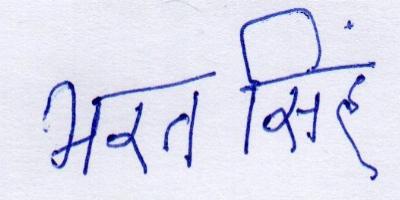 भरत सिंह